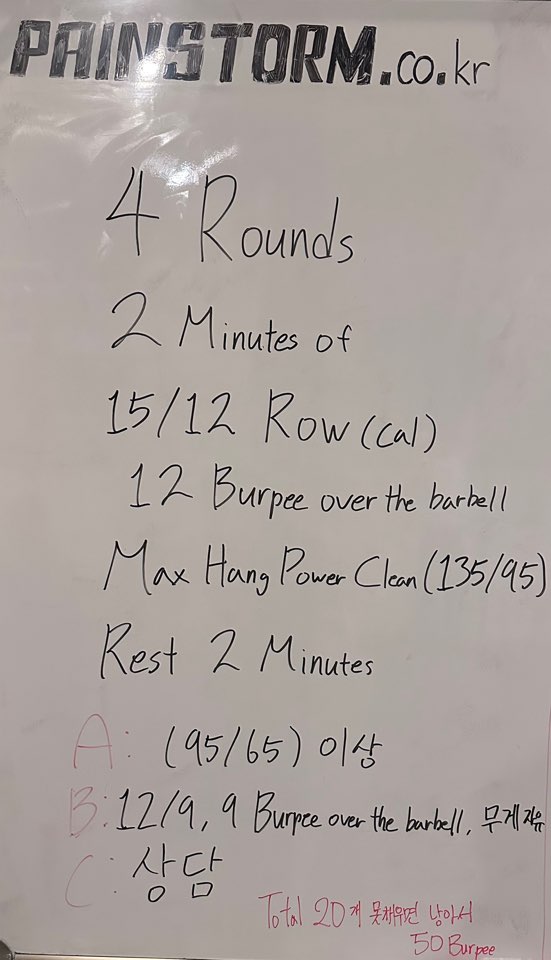 PAINSTORM.co.kr
4 Rounds
2 Minutes of
15/12 Row (cal)
12 Burpee over the barbell
Max Hang Power Clean (135/95)
Rest 2 Minutes
A: (95/65) 이상
B: 12/9, 9 Burpee over the barbell, 무게 자유
C: 상담
Total 20개 못채우면 남아서
50 Burpee